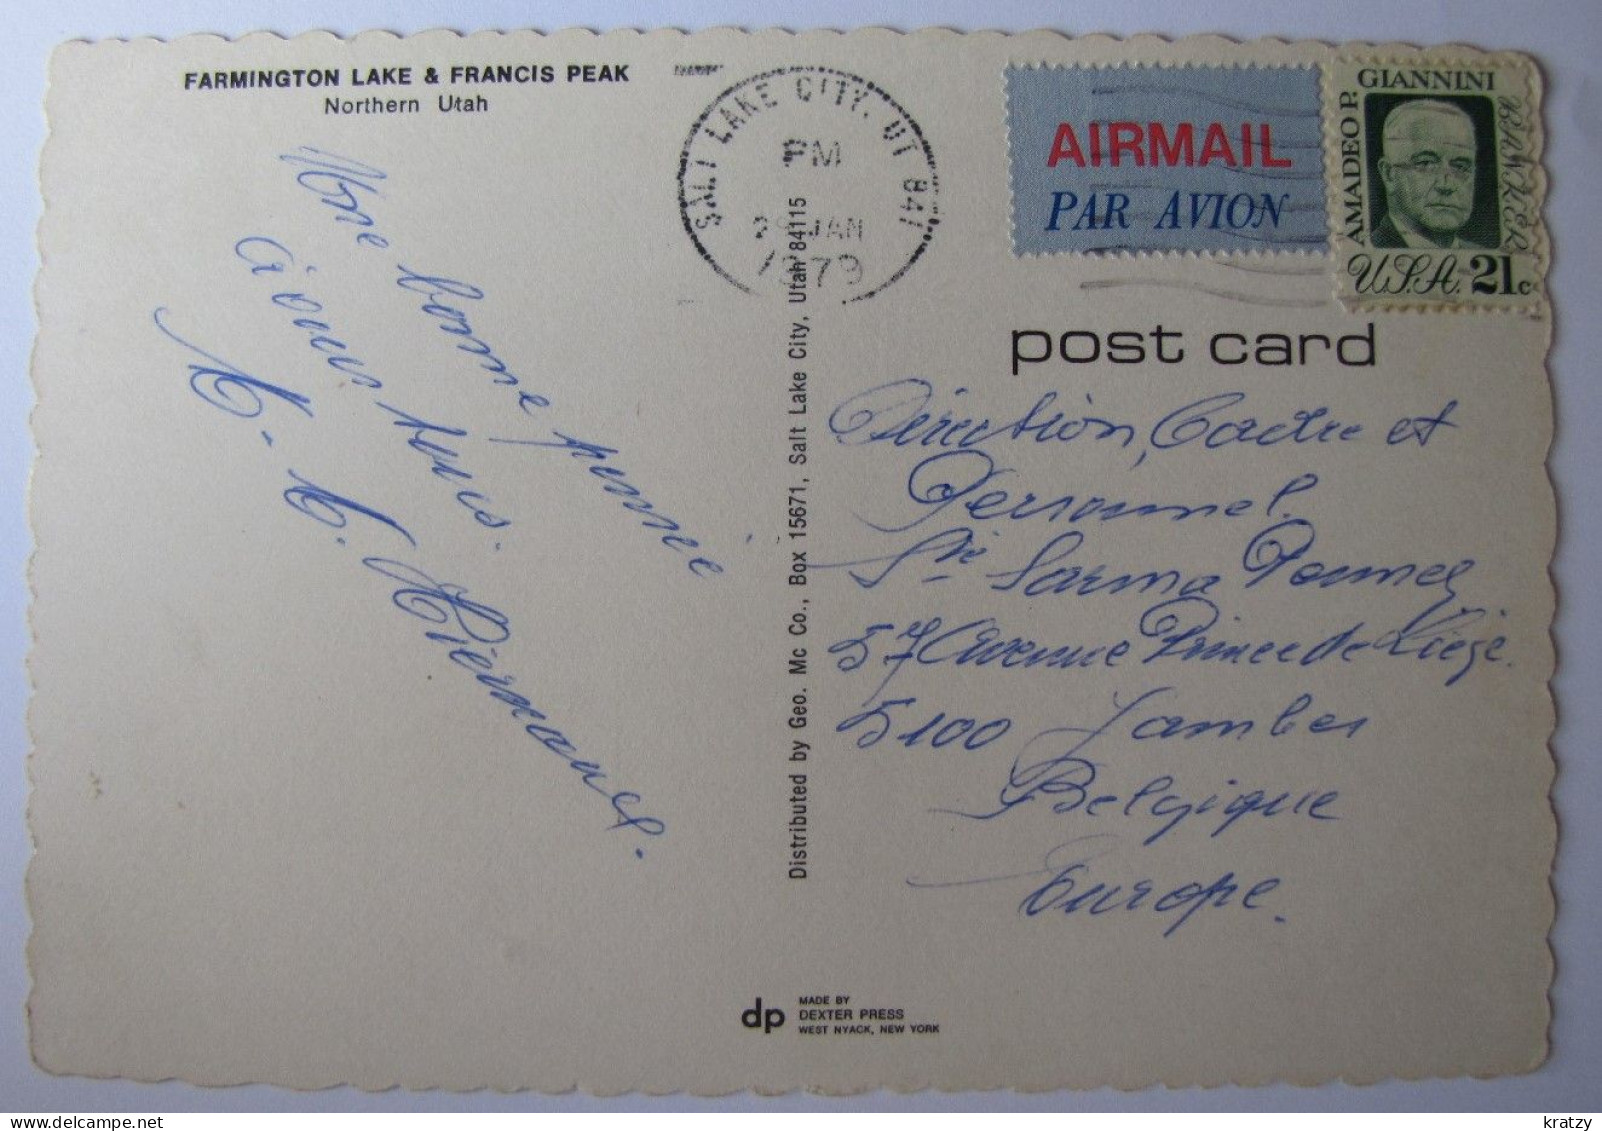 FARMINGTON LAKE & FRANCIS PEAK
Northern Utah
Une bonne année
à vous tous.
Hiernaux.
Distributed by Geo. Mc Co., Box 15671, Salt Lake City, Utah 84115
SALT LAKE CITY, UT 841
PM
JAN
1979
AIRMAIL
PAR AVION
AMADEO P. GIANNINI
BANKER
U.S.A. 21c
post card
Direction, Cadre et
Personnel.
Sté Sarma
57 Avenue Prince de Liège.
5100 Jambes
Belgique
Europe.
dp
MADE BY
DEXTER PRESS
WEST NYACK, NEW YORK
kratzy